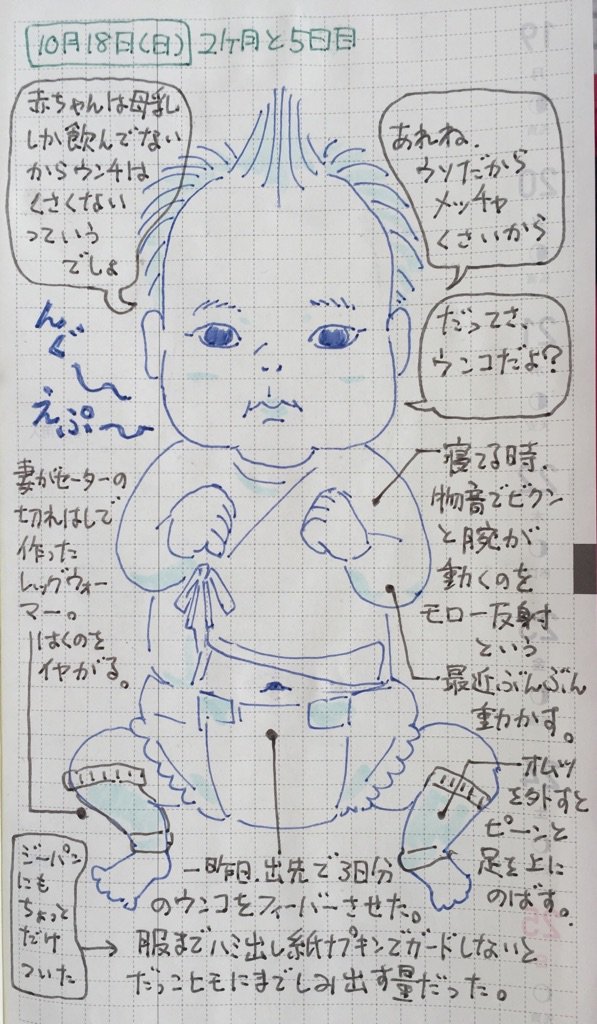 10月18日(日) 2ヶ月と5日目
赤ちゃんは母乳
しか飲んでない
からウンチは
くさくない
っていう
でしょ
あれね、
ウソだから
メッチャ
くさいから
だってさ、
ウンコだよ？
んぐ〜
えぷ〜
妻がセーターの
切れはしで
作った
レッグウォー
マー。
はくのを
イヤがる。
寝てる時、
物音でビクン
と腕が
動くのを
モロー反射
という
最近ぶんぶん
動かす。
オムツ
を外すと
ピーンと
足を上に
のばす。
一昨日、出先で3日分
のウンコをフィーバーさせた。
ジーパン
にも
ちょっと
だけ
ついた
→ 服までハミ出し紙ナプキンでガードしないと
だっこヒモにまでしみ出す量だった。
19
20
25